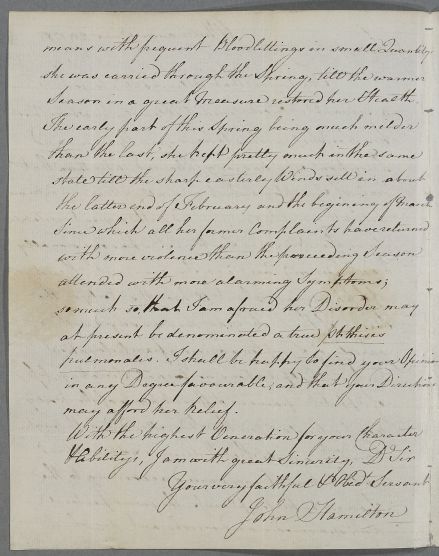 means with frequent Bloodlettings in small Quantity
she was carried through the Spring, till the warmer
Season in a great measure restored her Health.
The early part of this Spring being much milder
than the last, she kept pretty much in the same
state till the sharp easterly Winds sett in about
the latter end of February and the begining of March
Since which all her former Complaints have returned
with more violence than the preceeding Season
attended with more alarming Symptoms;
so much so, that I am afraied her Disorder may
at present be denominated a true phthisis
pulmonalis. I shall be happy to find your Opinion
in any Degree favourable, and that your Directions
may afford her Relief.
With the highest Veneration for your Character
& Abilitys, I am with great Sincerity, Dr Sir
Your very faithful & Obed Servant
John Hamilton